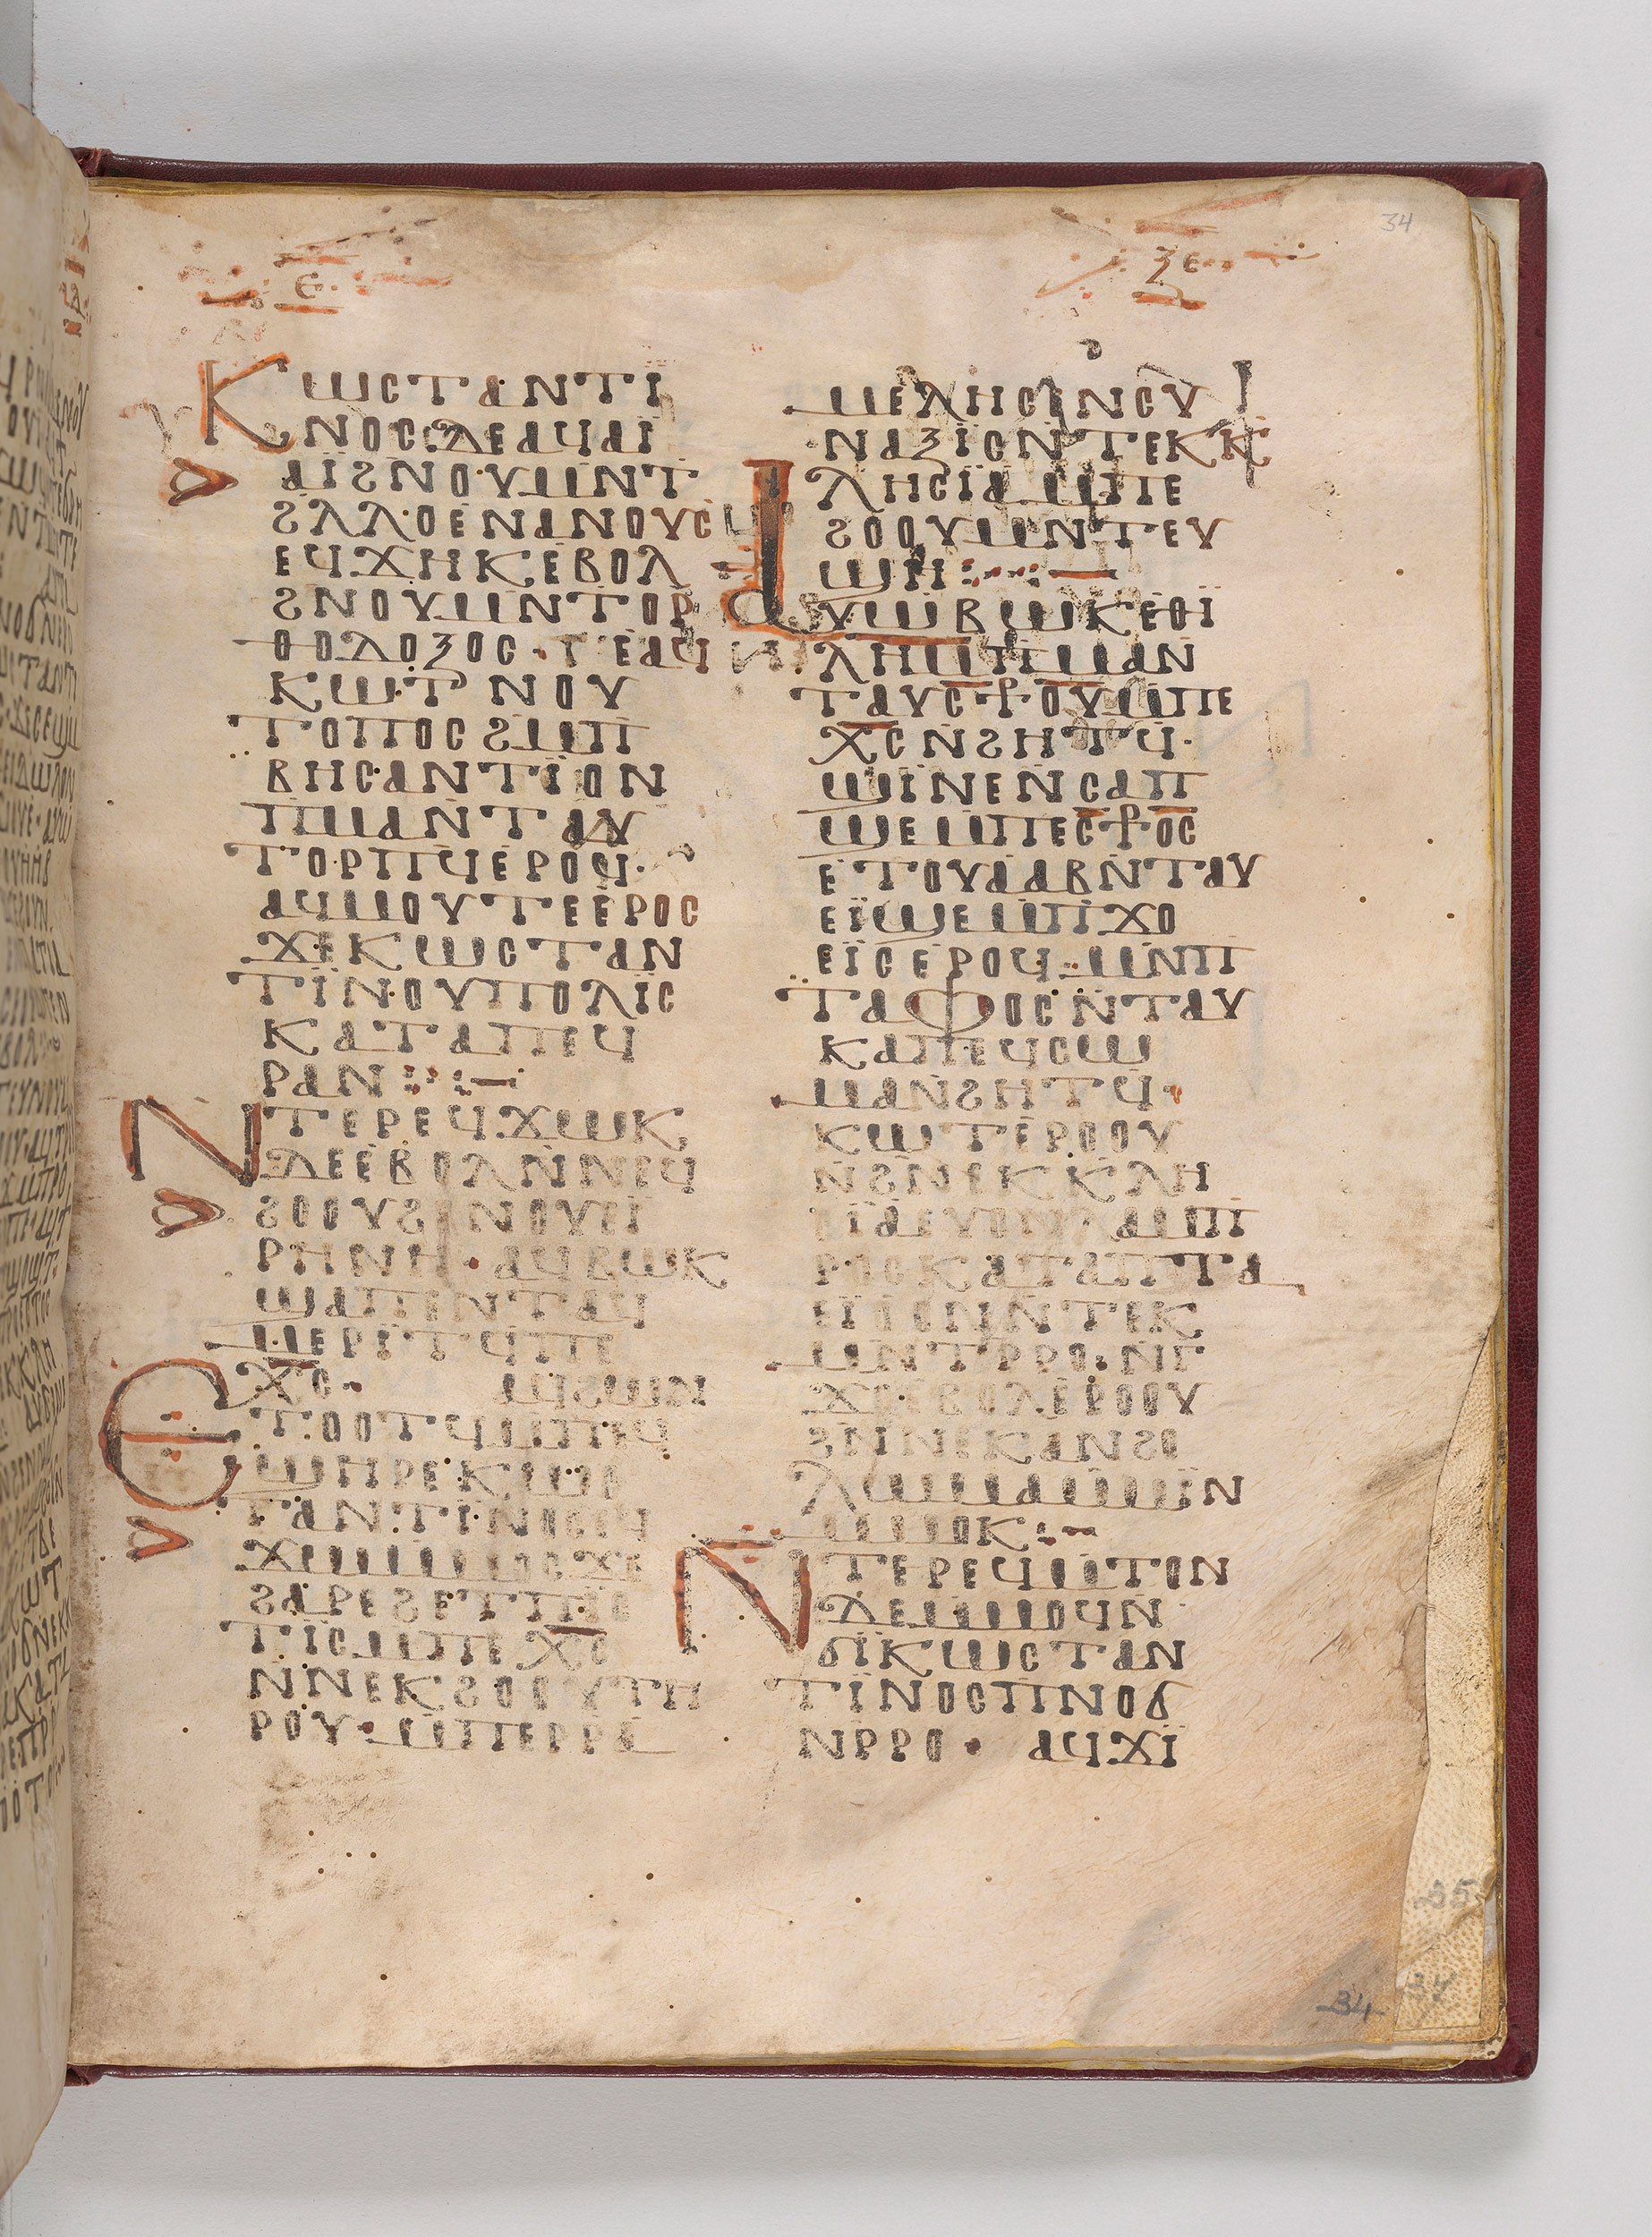 34
ⲉ
ⲝⲉ
Ⲕⲱⲥⲧⲁⲛⲧⲓ
ⲛⲟⲥ ⲇⲉ ⲁϥⲁⲓ
ⲁⲓ̈ ϩⲛⲟⲩⲙⲛⲧ
ϩⲗⲗⲟ ⲉⲛⲁⲛⲟⲩⲥ
ⲉϥϫⲏⲕ ⲉⲃⲟⲗ
ϩⲛⲟⲩⲙⲛⲧⲟⲣ
ⲑⲟⲇⲟⲝⲟⲥ· ⲉⲁϥ
ⲕⲱⲧ ⲛⲟⲩ
ⲧⲟⲡⲟⲥ ϩⲙⲡ
ⲃⲏⲥⲁⲛⲧⲓⲟⲛ
ⲡⲙⲁ ⲛⲧⲁⲩ
ⲧⲟⲣⲡϥ ⲉⲣⲟϥ·
ⲁϥⲙⲟⲩⲧⲉ ⲉⲣⲟⲥ
ϫⲉ ⲕⲱⲥⲧⲁⲛ
ⲧⲓⲛⲟⲩⲡⲟⲗⲓⲥ
ⲕⲁⲧⲁ ⲡⲉϥ
ⲣⲁⲛ
Ⲛⲧⲉⲣⲉϥϫⲱⲕ
ⲇⲉ ⲉⲃⲟⲗ ⲛⲛⲉϥ
ϩⲟⲟⲩ ϩⲛⲟⲩⲉⲓ
ⲣⲏⲛⲏ· ⲁϥⲃⲱⲕ
ϣⲁⲡⲉⲛⲧⲁϥ
ⲙⲉⲣⲓⲧϥ ⲡⲉ
ⲭ̅ⲥ̅· ⲙϩⲱⲛ
Ⲉⲧⲟⲟⲧϥ ⲙⲡⲉϥ
ϣⲏⲣⲉ ⲕⲱⲥ
ⲧⲁⲛⲧⲓⲛⲟⲥ ⲉϥ
ϫⲱ ⲙⲙⲟⲥ ϫⲉ
ϩⲁⲣⲉϩ ⲉⲧⲡⲓⲥ
ⲧⲓⲥ ⲙⲡⲉⲭ̅ⲥ̅
ⲛⲛⲉⲕϩⲟⲟⲩ ⲧⲏ
ⲣⲟⲩ· ⲙⲡⲉⲣⲣⲁ
ⲙⲉⲗⲏⲥ ⲉⲛⲥⲩ
ⲛⲁⲝⲓⲥ ⲛⲧⲉⲕⲕ
ⲗⲏⲥⲓⲁ ⲙⲡⲉ
ϩⲟⲟⲩ ⲙⲛⲧⲉⲩ
ϣⲏ
Ⲁⲩⲱ ⲃⲱⲕ ⲉⲑⲓ
ⲗⲏⲙ ⲡⲙⲁ ⲛ
ⲧⲁⲩⲥ̅⳨ⲟ̅ⲩ ⲙⲡⲉ
ⲭⲥ ⲛϩⲏⲧϥ·
ϣⲓⲛⲉ ⲛⲥⲁ ⲡ
ϣⲉ ⲙⲡⲉⲥ̅⳨ⲟ̅ⲥ
ⲉⲧⲟⲩⲁⲁⲃ ⲛⲧⲁⲩ
ⲉⲓϣⲉ ⲙⲡϫⲟ
ⲉⲓⲥ ⲉⲣⲟϥ· ⲙⲛⲡ
ⲧⲁⲫⲟⲥ ⲛⲧⲁⲩ
ⲕⲁ ⲡⲉϥⲥⲱ
ⲙⲁ ⲛϩⲏⲧϥ·
ⲕⲱⲧ ⲉⲣⲟⲟⲩ
ⲛϩⲛⲉⲕⲕⲗⲏ
ⲥⲓⲁ ⲉⲩⲟⲛ ⲗⲁⲙⲡ
ⲣⲟⲥ ⲕⲁⲧⲁ ⲡⲧⲁ
ⲉⲓⲟ ⲛⲧⲉⲕ
ⲙⲛⲧⲣⲣⲟ· ⲛⲅ
ϫⲓ ⲉⲃⲟⲗ ⲉⲣⲟⲟⲩ
ϩⲛⲛⲉⲕⲁⲛϩⲁ
ⲗⲱⲙⲁ ⲙⲙⲓⲛ
ⲙⲙⲟⲕ
Ⲛⲧⲉⲣⲉϥⲙⲧⲟⲛ
ⲇⲉ ⲙⲙⲟϥ ⲛ
ϭⲓ ⲕⲱⲥⲧⲁⲛ
ⲧⲓⲛⲟⲥ ⲡⲛⲟϭ
ⲛⲣⲣⲟ· ⲁϥϫⲓ
35
34
34